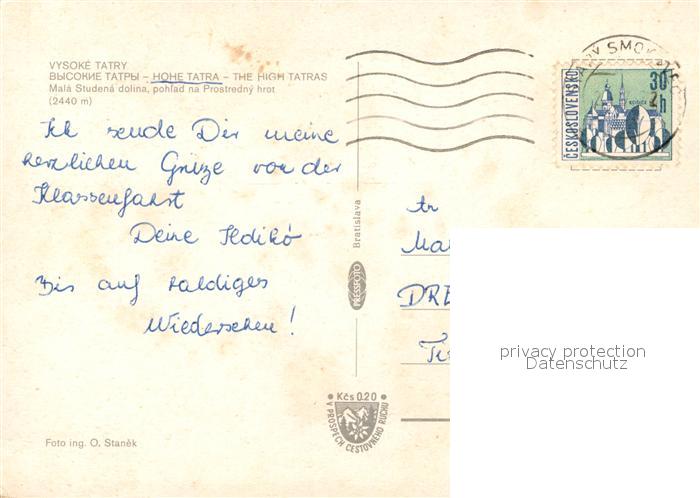 VYSOKÉ TATRY
ВЫСОКИЕ ТАТРЫ – HOHE TATRA – THE HIGH TATRAS
Malá Studená dolina, pohľad na Prostredný hrot
(2440 m)
Ich sende Dir meine
herzlichen Grüze von der
Klassenfahrt
Deine Ildikó
Bis auf baldiges
Wiedersehen!
Foto ing. O. Staněk
Bratislava
PRESSFOTO
Kčs 0.20
V PROSPECH CESTOVNÉHO RUCHU
SMOK
ČESKOSLOVENSKO
30
h
An
Ma
DRE
privacy protection
Datenschutz